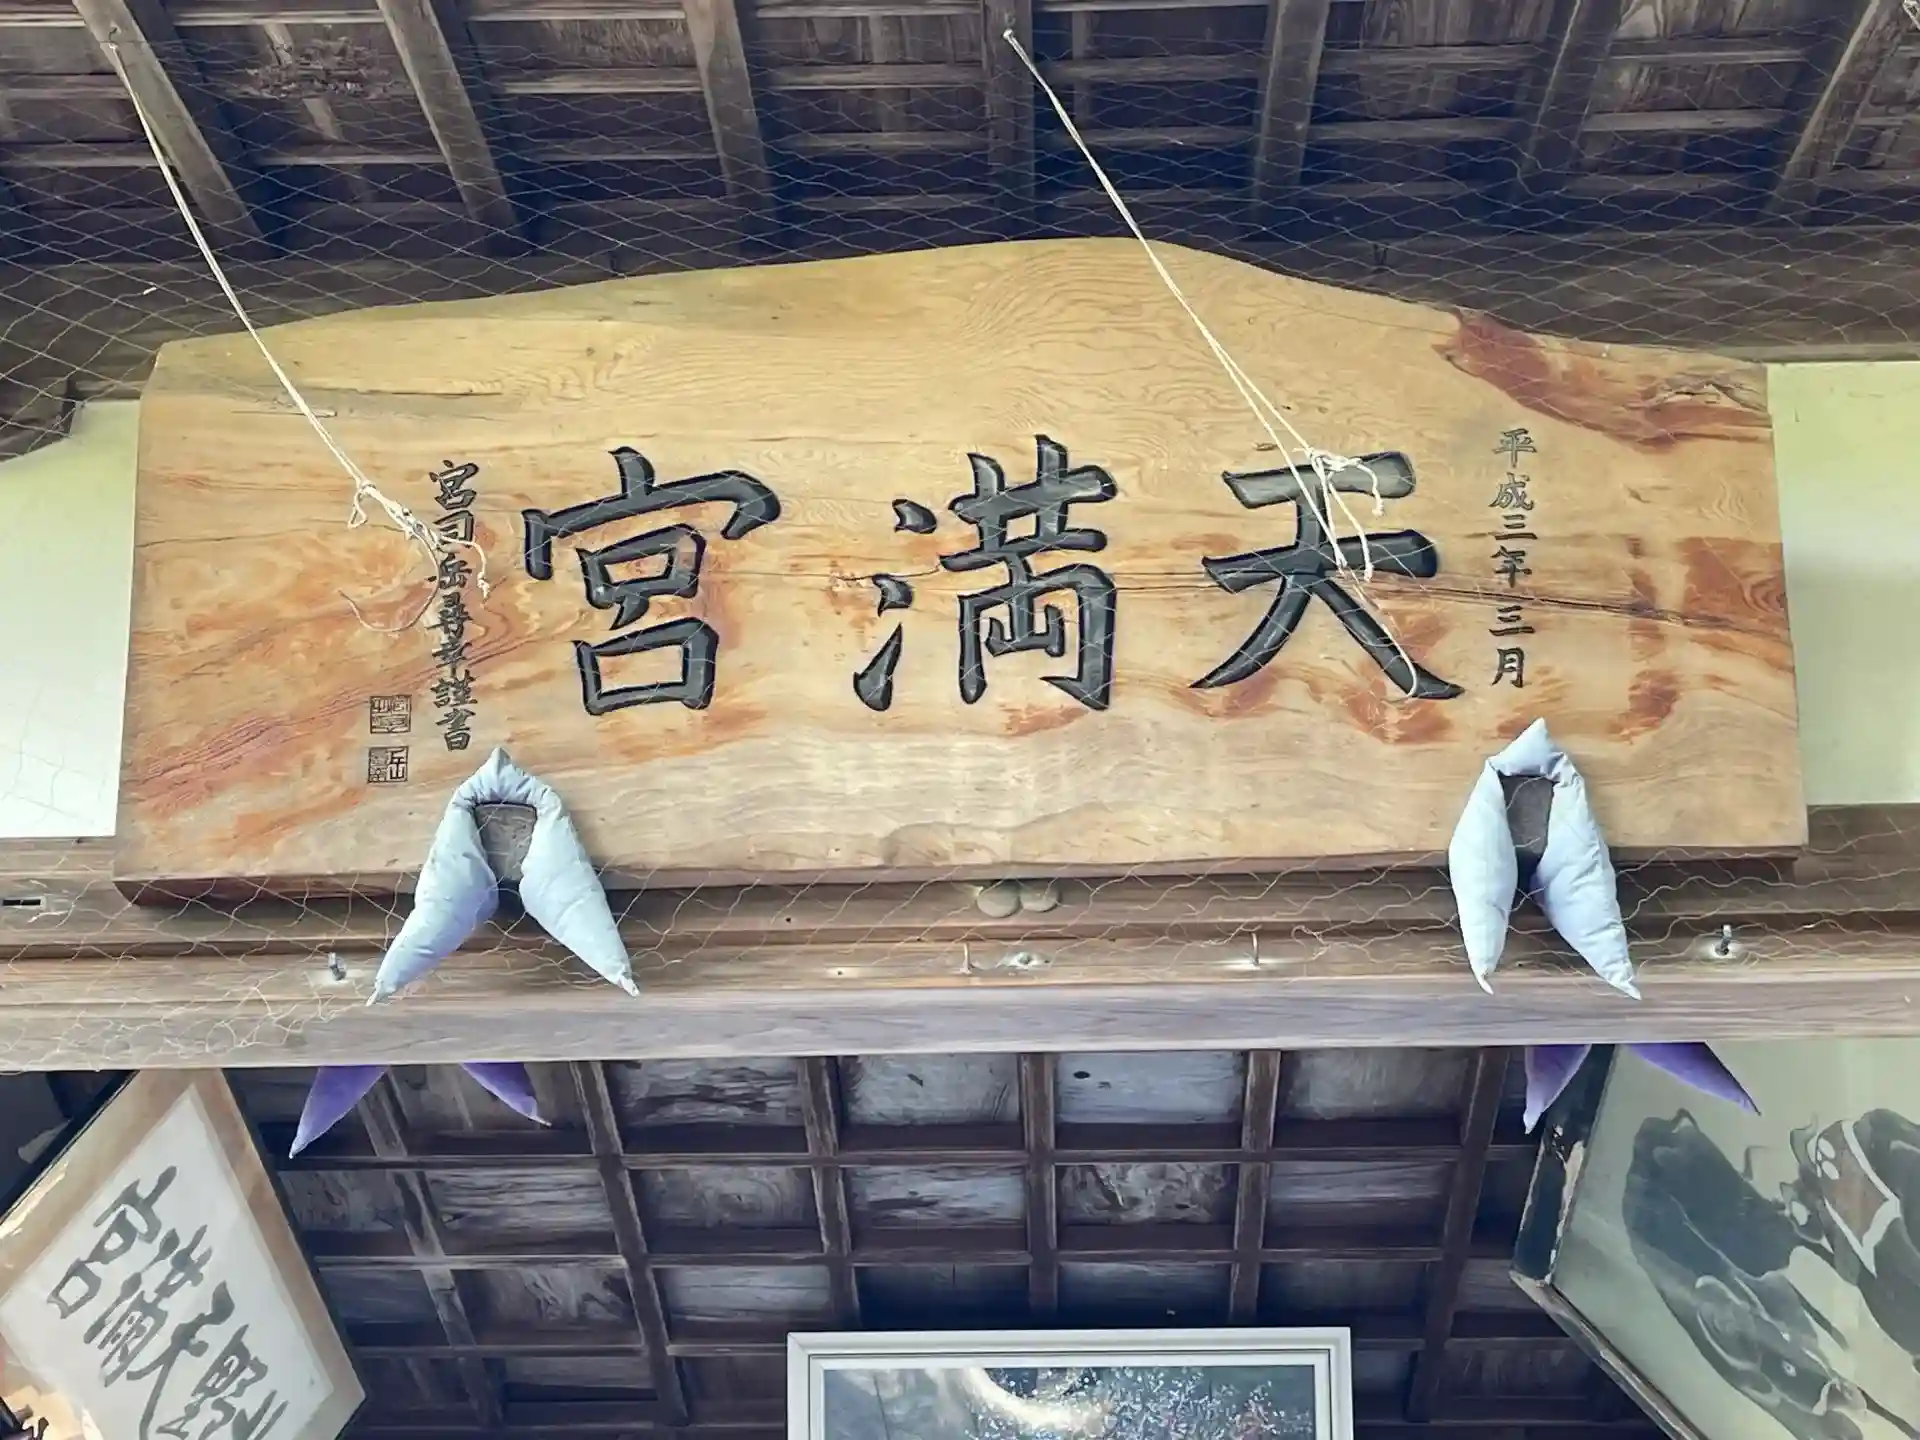 平成三年三月
天満宮
宮司岳尋幸謹書